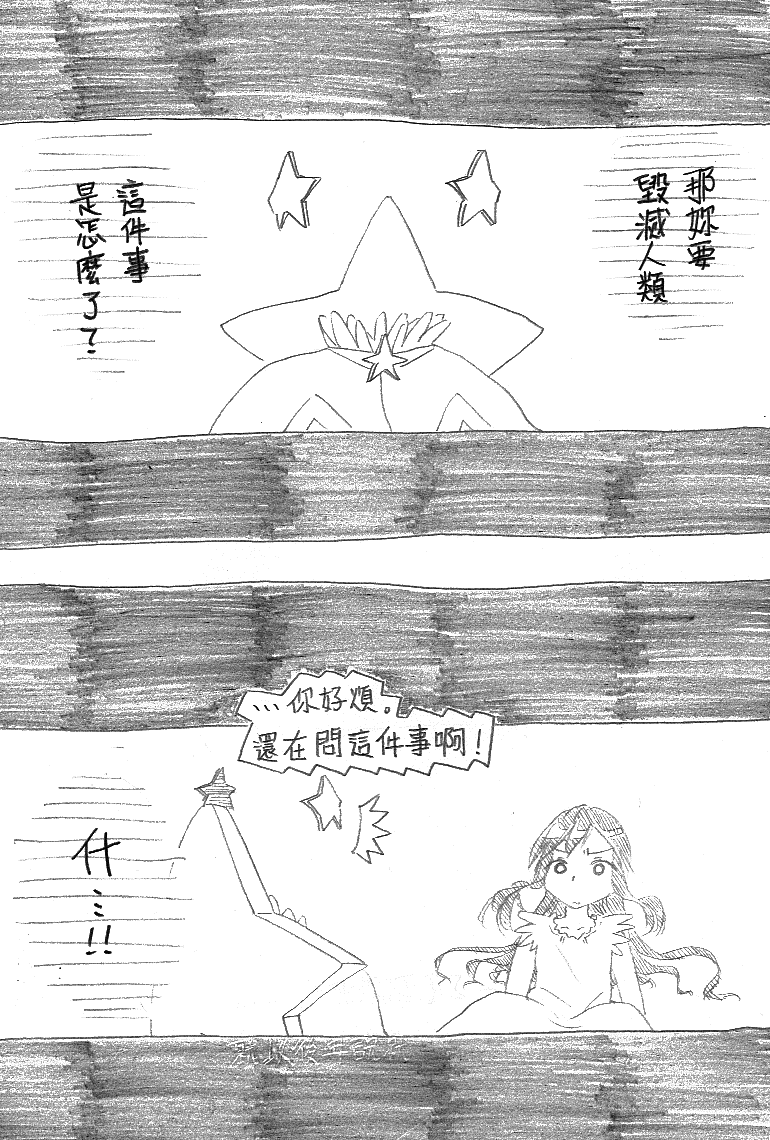 那妳要
毀滅人類
這件事
是怎麼了？
…你好煩。
還在問這件事啊！
什…!!